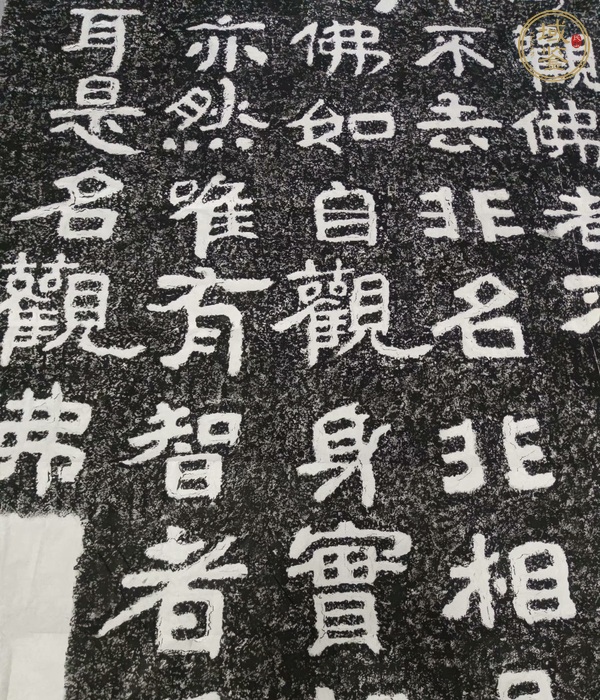 觀佛者
不去非名非相
佛如自觀身實
亦然唯有智者
耳是名觀佛